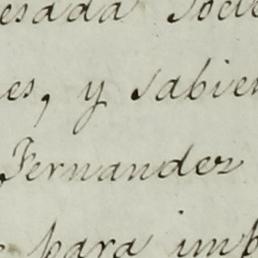 esada Socie
es, y sabien
Fernandez
para imp